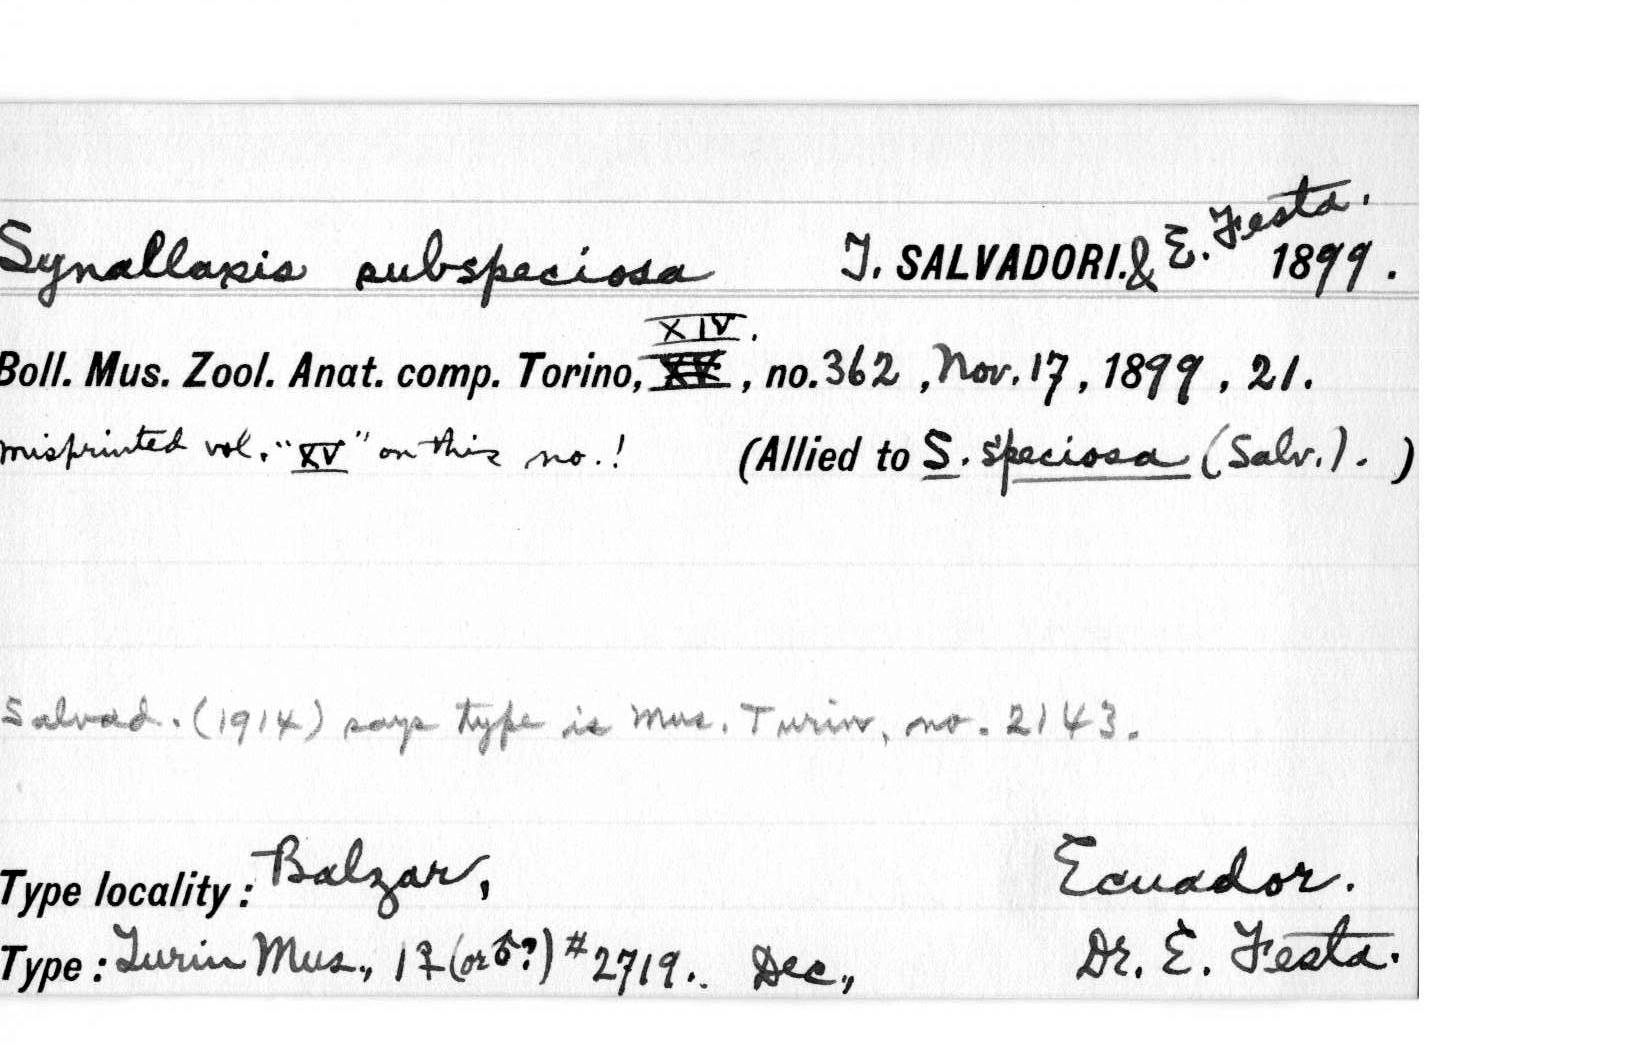 Synallaxis subspeciosa T. SALVADORI. & E. Festa. 1899.
XIV.
Boll. Mus. Zool. Anat. comp. Torino, XV, no. 362, Nov. 17, 1899, 21.
misprinted vol. "XV" on this no.! (Allied to S. speciosa (Salv.). )
Salvad. (1914) says type is Mus. Turin, no. 2143.
Type locality: Balzar, Ecuador.
Type: Turin Mus., 1♀ (or ♂?) #2719. Dec., Dr. E. Festa.